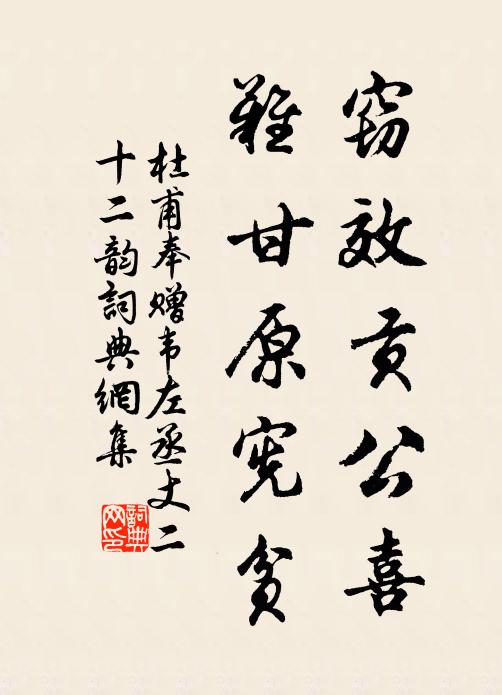 窃效贡公喜
难甘原宪贫
杜甫奉赠韦左丞丈二
十二韵詞典網集
詞典网印